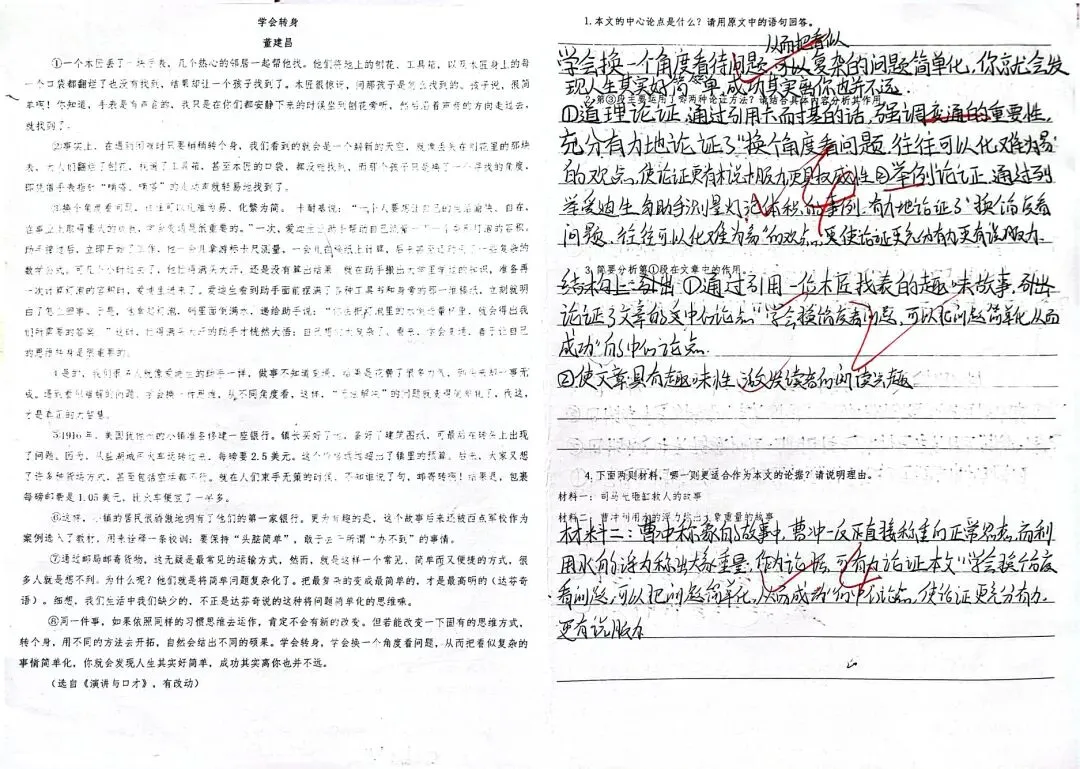 学会转身
董建昌
①一个木匠丢了一块手表，几个热心的邻居一起帮他找。他们将地上的刨花、工具箱，以及木匠身上的每
一个口袋都翻遍了也没有找到，结果却让一个孩子找到了。木匠很惊讶，问那孩子是怎么找到的。孩子说，很简
单啊！你知道，手表是有声音的，我只是在你们都安静下来的时候坐到刨花旁听，然后沿着声音的方向走过去，
就找到了。
②事实上，在遇到困难时只要稍稍转个身，我们看到的就会是一个崭新的天空，就像丢失在刨花里的那块
表，大人们翻遍了刨花，找遍了工具箱，甚至木匠的口袋，都没能找到，而那个孩子只是换了一个寻找的角度，
即凭借手表指针“嘀嗒、嘀嗒”的走动声就轻易地找到了。
③换个角度看问题，往往可以化难为易、化繁为简。卡耐基说：“一个人要想让自己的生活愉快、自在，
在事业上取得重大的成就，
一次计算灯泡的容积时，爱迪生进来了。爱迪生看到助手面前摆满了各种工具书和身旁的那一堆稿纸，立刻就明
所需要的答案。”这时，忙得满头大汗的助手才恍然大悟：自己想得太复杂了。看来，学会变通，善于让自己
的思维转身是很重要的。
④是的，我们很多人就像爱迪生的助手一样，做事不知道变通，结果是花费了很多力气，到头来却一事无
才是真正的大智慧。
⑤1916年，美国犹他州的小镇准备修建一座银行。镇长买好了地，备好了建筑图纸，可最后在砖头上出现
了问题。因为，从盐湖城用火车运砖过来，每磅要2.5美元，这个价格远远超出了镇里的预算。后来，大家又想
了许多种货运方式，甚至包括空运都不行。就在人们束手无策的时候，不知谁说了句，邮寄砖啊！结果是，包裹
每磅邮费是1.05美元，比火车便宜了一半多。
⑥这样，小镇的居民很骄傲地拥有了他们的第一家银行。更为有趣的是，这个故事后来还被西点军校作为
案例选入了教材，用来诠释一条校训：要保持“头脑简单”，敢于去干所谓“办不到”的事情。
⑦通过邮局邮寄货物，这无疑是最常见的运输方式，然而，就是这样一个常见、简单而又便捷的方式，很
多人就是想不到。为什么呢？他们就是将简单问题复杂化了。把最复杂的变成最简单的，才是最高明的（达芬奇
语）。细想，我们生活中我们缺少的，不正是达芬奇说的这种将问题简单化的思维嘛。
⑧同一件事，如果依照同样的习惯思维去运作，肯定不会有新的改变。但若能改变一下固有的思维方式，
转个身，用不同的方法去开拓，自然会结出不同的硕果。学会转身，学会换一个角度看问题，从而把看似复杂的
事情简单化，你就会发现人生其实好简单，成功其实离你也并不远。
（选自《演讲与口才》，有改动）
1.本文的中心论点是什么？请用原文中的语句回答。
从而把看似
学会换一个角度看待问题 可以复杂的问题简单化，你就会发
现人生其实好简单，成功其实离你也并不远。
2.第③段主要运用了哪两种论证方法？请结合具体内容分析其作用
①道理论证，通过引用卡耐基的话，强调变通的重要性，
充分有力地论证了“换个角度看问题，往往可以化难为易”
的观点。使论证更有说服力更具权威性②举例论证。通过列
举爱迪生与助手测量灯泡体积的事例，有力地论证了“换角度看
问题，往往可以化难为易”的观点，使论证更充分有力更有说服力。
3.简要分析第①段在文章中的作用
结构上：引出 ①通过引用一位木匠找表的趣味故事，引出
论证了文章的文中心论点“学会换角度看问题，可以把问题简单化从而
成功”的中心论点。
②使文章具有趣味性，激发读者的阅读兴趣。
4.下面两则材料，哪一则更适合作为本文的论据？请说明理由。
材料一：司马光砸缸救人的故事
材料二：曹冲利用水的浮力称出大象重量的故事
材料二：曹冲称象的故事中，曹冲一反直接称重的正常思想，而利
用水的浮力称出大象重量，作为论据，可有力论证本文“学会换个角度
看问题，可以把问题简单化，从而成功”的中心论点，使论证更充分有力，
更有说服力